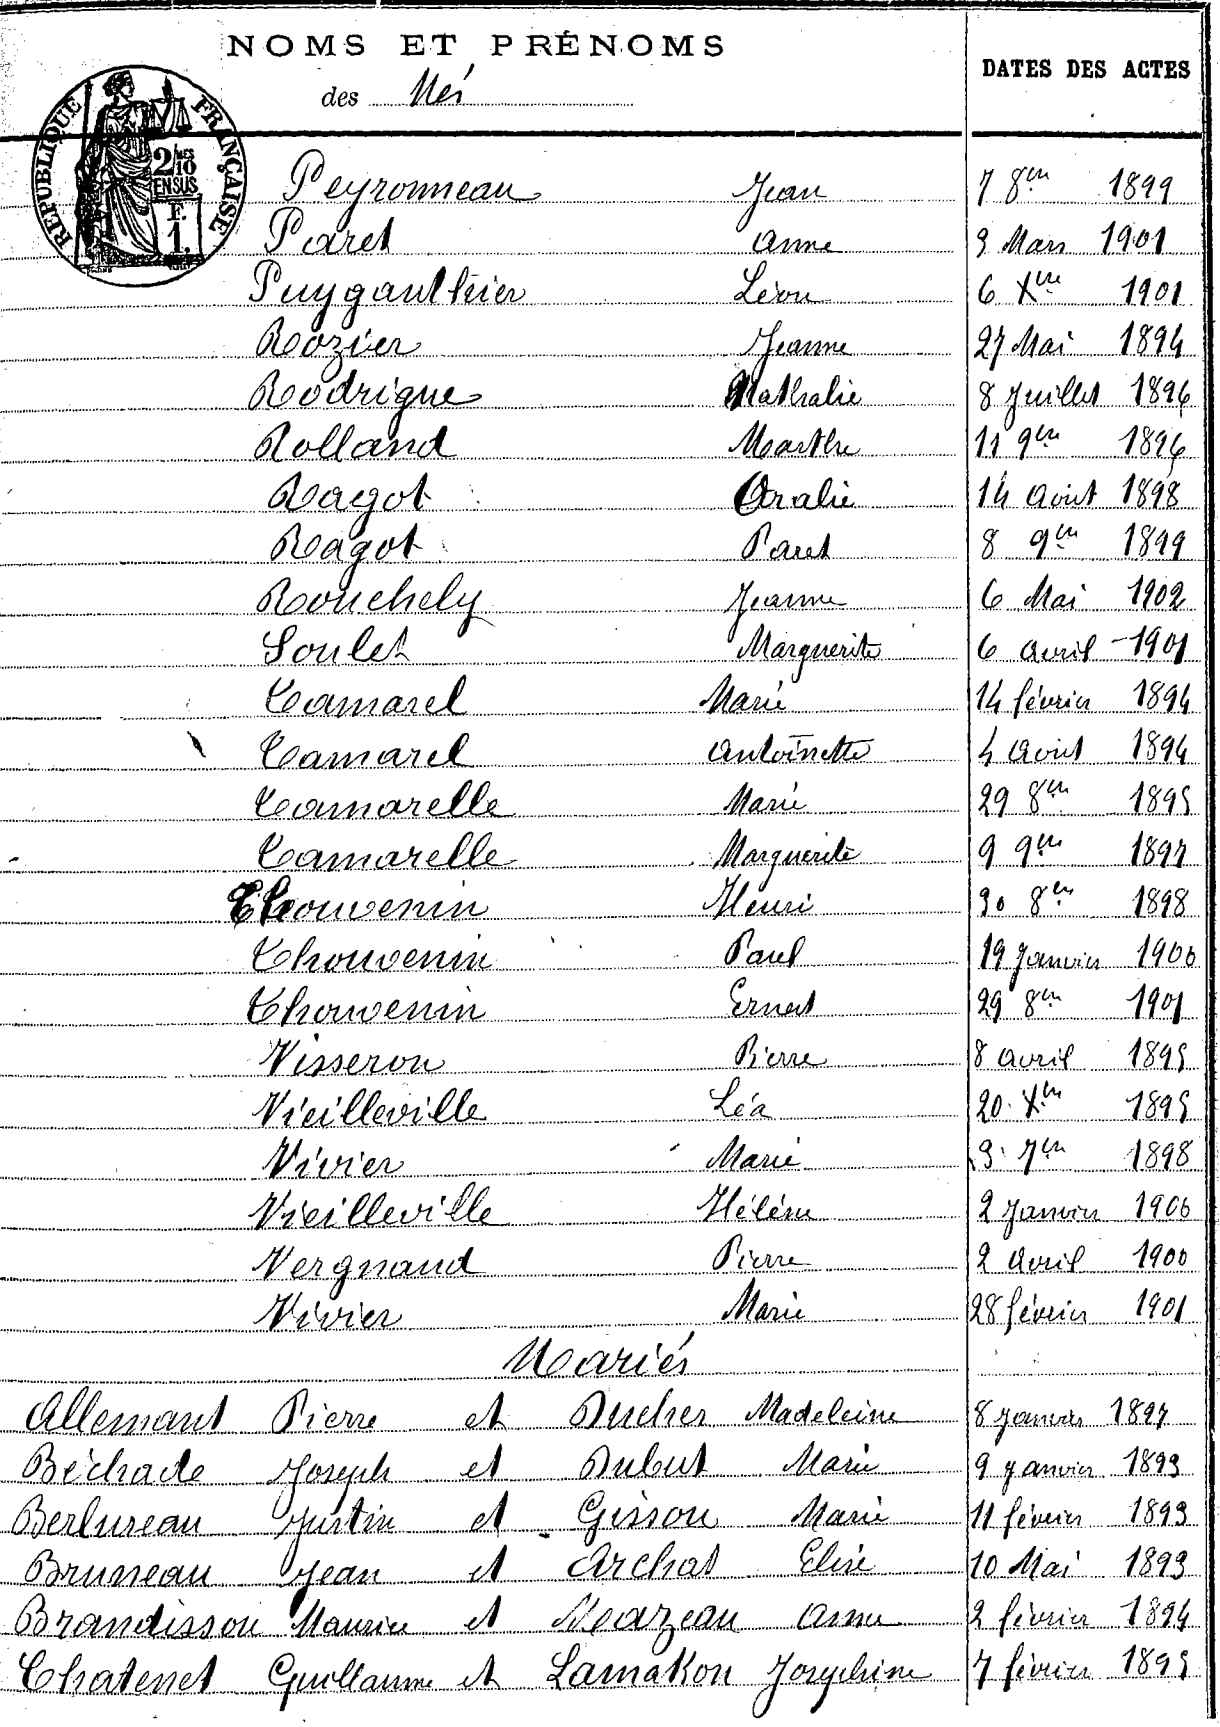 NOMS ET PRÉNOMS
DATES DES ACTES
des Nés
RÉPUBLIQUE FRANÇAISE
2 MES
10
EN SUS
F.
1.
Peyronneau Jean 7 8bre 1899
Paret Anne 9 Mars 1901
Puyganthier Léon 6 Xbre 1901
Rozier Jeanne 27 Mai 1894
Rodrigue Nathalie 8 Juillet 1896
Rolland Marthe 11 9bre 1896
Ragot Oralie 14 Août 1898
Ragot Paret 8 9bre 1899
Rouchely Jeanne 6 Mai 1902
Soulet Marguerite 6 Avril 1901
Tamarel Marie 14 février 1894
Tamarel Antoinette 4 Août 1894
Tamarelle Marie 29 8bre 1895
Tamarelle Marguerite 9 9bre 1897
Thouvenin Henri 30 8bre 1898
Thouvenin Paul 19 Janvier 1900
Thouvenin Ernest 29 8bre 1901
Visseron Pierre 8 Avril 1895
Vieilleville Léa 20 Xbre 1895
Vivier Marie 3 7bre 1898
Vieilleville Hélène 2 Janvier 1900
Vergnaud Pierre 2 Avril 1900
Vivier Marie 28 février 1901
Mariés
Allemant Pierre et Ducher Madeleine 8 Janvier 1897
Béchade Joseph et Dubut Marie 9 Janvier 1893
Berlureau Justin et Gisson Marie 11 février 1893
Bruneau Jean et Archat Elise 10 Mai 1893
Brandisson Maurice et Mazeau Anna 2 février 1894
Chatenet Guillaume et Lamakon Josephine 7 février 1895